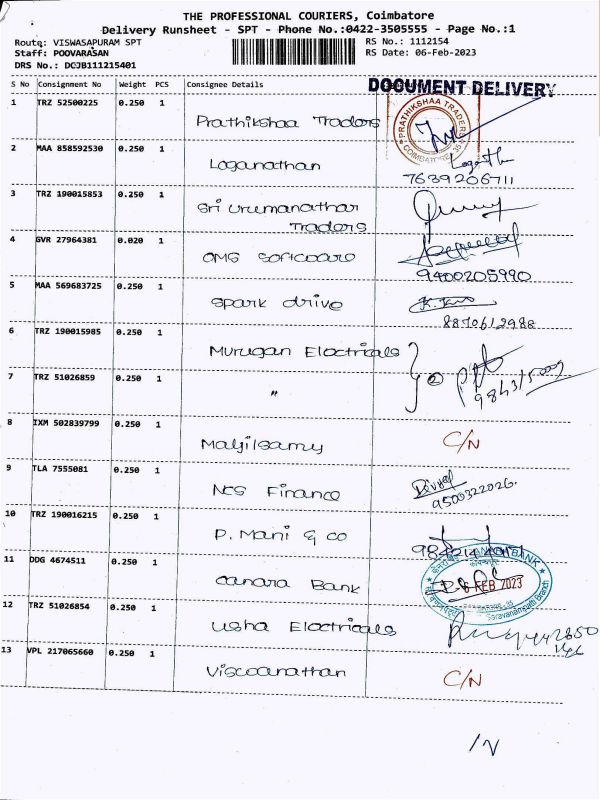 THE PROFESSIONAL COURIERS, Coimbatore
Delivery Runsheet - SPT - Phone No.:0422-3505555 - Page No.:1
Route: VISWASAPURAM SPT
Staff: POOVARASAN
DRS No.: DCJB111215401
RS No.: 1112154
RS Date: 06-Feb-2023
S No Consignment No Weight PCS Consignee Details
DOCUMENT DELIVERY
1 TRZ 52500225 0.250 1 Prathikshaa Traders
PRATHIKSHAA TRADERS
COIMBATORE
2 MAA 858592530 0.250 1 Loganathan
7639206711
3 TRZ 190015853 0.250 1 Sri Urumanathar
Traders
4 GVR 27964381 0.020 1 OMS Software
9400205990
5 MAA 569683725 0.250 1 Spark drive
8870612988
6 TRZ 190015985 0.250 1 Murugan Electricals
7 TRZ 51026859 0.250 1 "
②
8 IXM 502839799 0.250 1 Mayilsamy C/N
9 TLA 7555081 0.250 1 NCS Finance
9500322026
10 TRZ 190016215 0.250 1 P. Mani & co
11 DDG 4674511 0.250 1 Canara Bank
CANARA BANK
6 FEB 2023
Saravanampatti Branch
12 TRZ 51026854 0.250 1 Usha Electricals
13 VPL 217065660 0.250 1 Viswanathan C/N